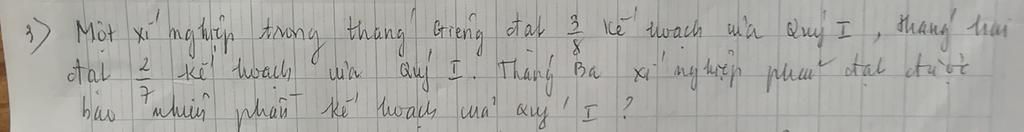 3) Một xí nghiệp trong tháng Giêng đạt 3/8 kế hoạch của Quý I, tháng hai
đạt 2/7 kế hoạch của Quý I. Tháng Ba xí nghiệp phải đạt được
bao nhiêu phần kế hoạch của quý I?